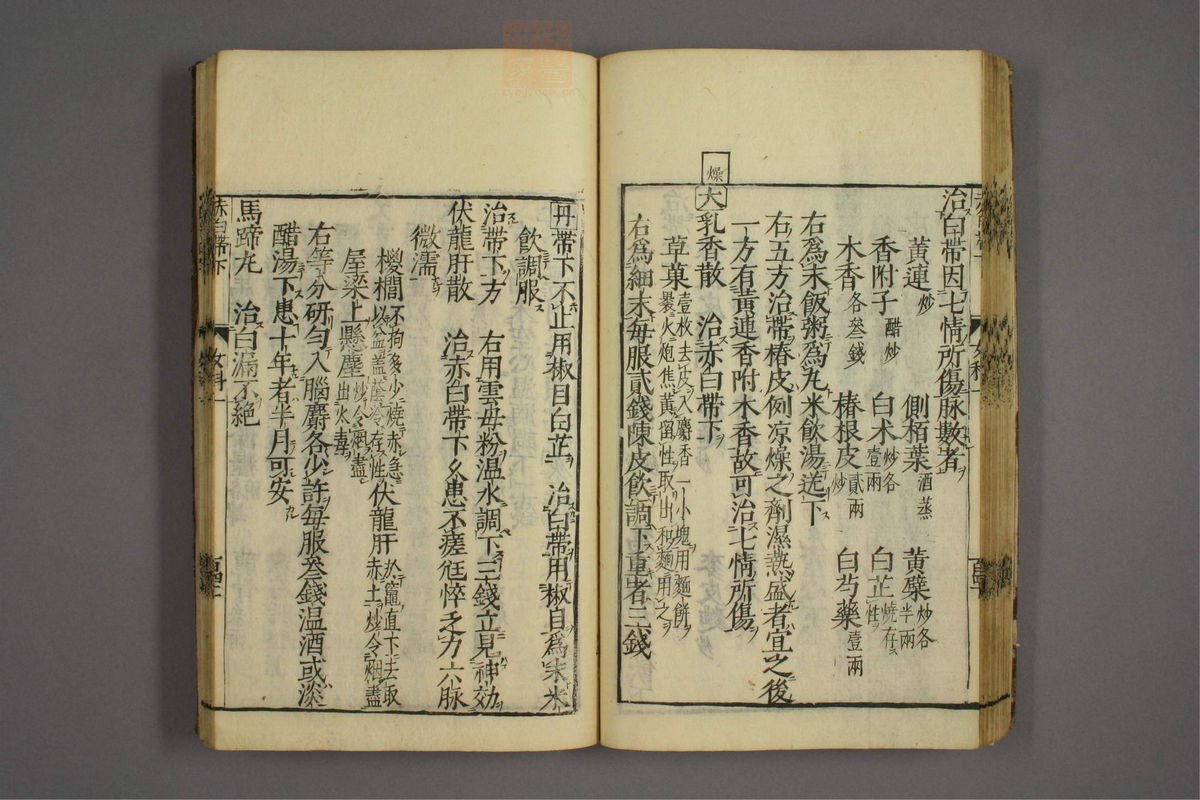 治白帶因七情所傷脉數者
黃連炒 側栢葉酒蒸 黃蘗炒各半兩
香附子醋炒 白术炒各壹兩 白芷燒存性
木香各叄錢 椿根皮炒貳兩 白芍藥壹兩
右爲末飯粥爲丸米飲湯送下
右五方治帶椿皮例凉燥之劑濕熱盛者宜之後
一方有黃連香附木香故可治七情所傷
燥
大乳香散 治赤白帶下
草菓壹枚去皮入麝香一小塊用麵餅裹火炮焦黃留性取出和麵用之
右爲細末每服貳錢陳皮飲調下重者三錢
丹帶下不止用椒目白芷 治白帶用椒目爲末米
飲調服
治帶下方 右用雲母粉溫水調下三錢立見神効
伏龍肝散 治赤白帶下久患不瘥尫悴乏力六脉
微濡
椶櫚不拘多少燒赤急以盆蓋蔭冷存性 伏龍肝於竈直下去取赤土炒令烟盡
屋梁上懸塵炒令烟盡出火毒
右等分研勻入腦麝各少許每服叄錢溫酒或淡
醋湯下患十年者半月可安
馬蹄丸 治白漏不絕
赤白帶下
女科一